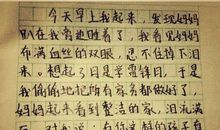 今天早上我起来,发现妈妈
趴在我旁边睡着了,我看见妈妈
布满血丝的双眼,忍不住掉下泪
来。想起今日是学雷锋日,于是
我偷偷地把所有家务都做好了,
妈妈起来看到整洁的家,泪流满